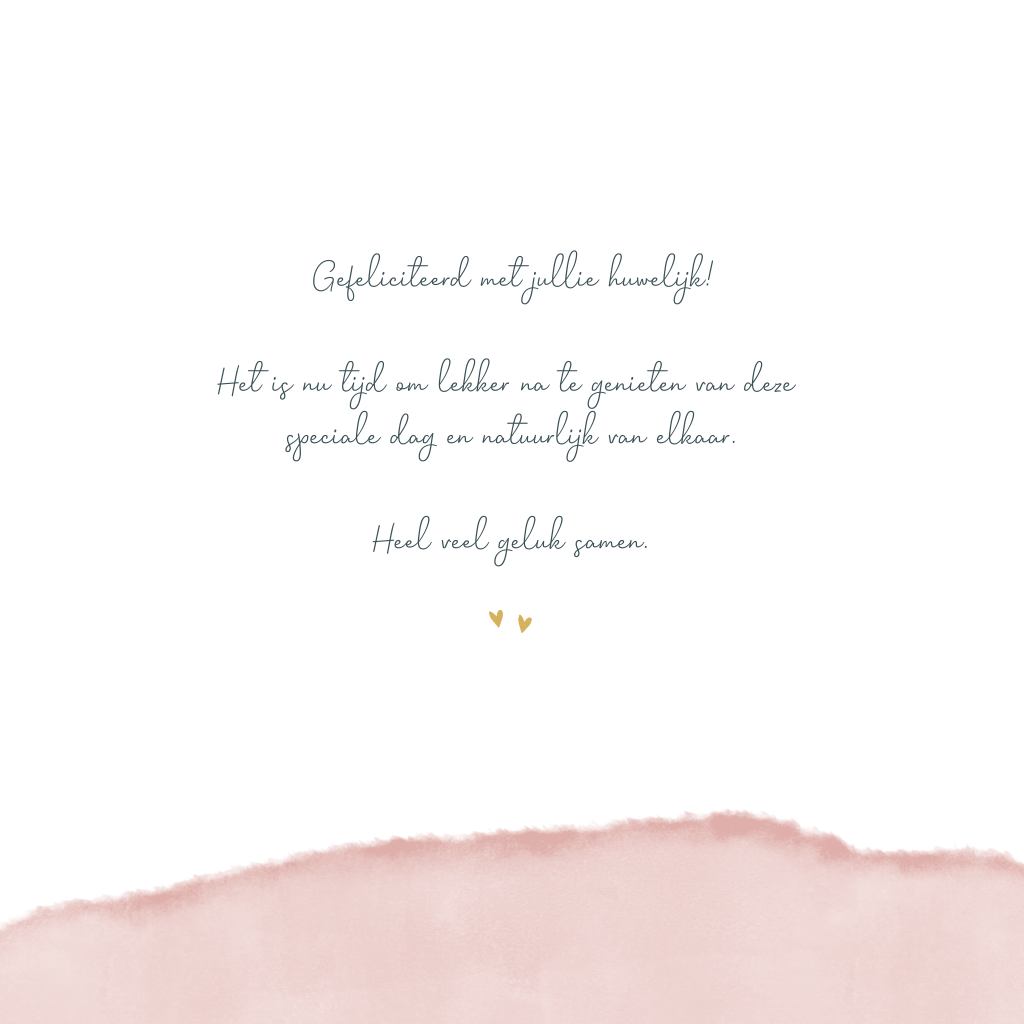 Gefeliciteerd met jullie huwelijk!
Het is nu tijd om lekker na te genieten van deze
speciale dag en natuurlijk van elkaar.
Heel veel geluk samen.